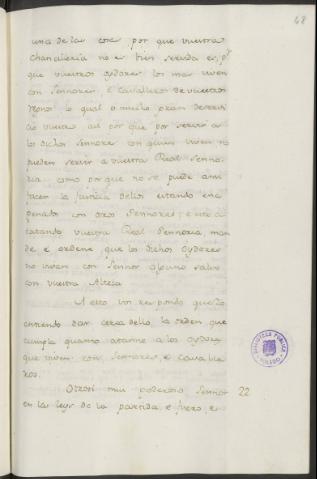 68
una de las cosas por que vuestra
Chancilleria no es bien servida es, p.r
que vuestros oydores los mas viven
con Sennores, e Cavalleros de vuestros
Regnos lo qual es mucho gran deservi
cio vuestro asi por que por servir a
los dichos Sennores con quien viven no
pueden servir a vuestra Real Senno
ria como por que no se puede ansi
facer la Justicia dellos estando en
con otros Sennores; e esto a
catando vuestra Real Sennoria man
de e ordene que los dichos oydores
no viven con Sennor alguno salvo
con vuestra Alteza
A esto vos respondo que Yo
entiendo dar cerca dello la orden que
cumpla quanto atanne a los oydores
que viven con Sennores, e Cavalle
ros.
Otrosi mui poderoso Sennor 22
en las leys de la partida, e fuero, e
BIBLIOTECA PUBLICA
TOLEDO